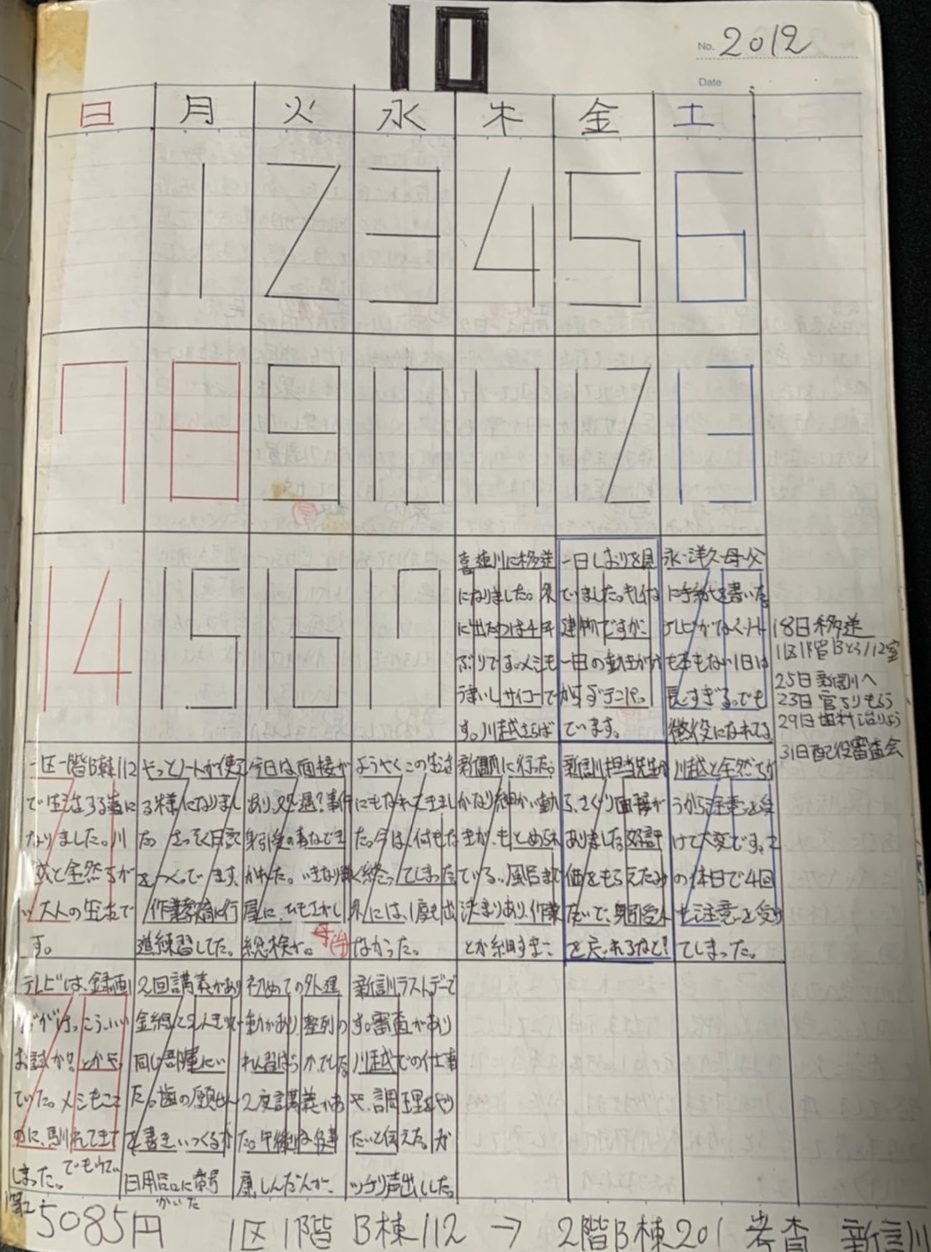 10
No. 2012
Date
日 月 火 水 木 金 土
1 2 3 4 5 6
7 8 9 10 11 12 13
14 15 16 17
喜連川に移送
になりました。外
に出たのは4年
ぶりです。メシも
うまいしサイコーで
す。川越さらば
一日しおりを見
ていました。キレイな
建物ですが、
一日の動作が
ています。
永・洋久・母・父
に手紙を書いた。
テレビがなくノート
も本もない1日は
長すぎる。でも
懲役になれてる
18日移送
1区1階Bとう112室
25日新訓へ
23日官ちりもらう
29日歯科
31日配役審査会
一区一階B棟112
で生活する事に
なりました。川
越と全然ちが
い大人の生活で
す。
やっとノートが使え
る様になりまし
た。さっそく日記
をつくっています。
作業教育に行
進練習した。
今日は面接が
あり、処遇?事件
身引受の事などき
かれた。いきなり
屋に、ひもさがし
総検が。
ようやくこの生活
にもなれてきまし
た。今は、何もな
く終ってしまった
外には、1度も出
なかった。
新訓に行った。
かなり細かい動
きが、もとめられ
ている。風呂まで
決まりあり、作業
とか細すぎ
新訓担当先生か
ら、さくり面接が
ありました。好評
価をもらえたみ
たいで、身引受人
を戻れるなど!
川越と全然ちが
うから注意を受
けて大変です。こ
の休日で4回
も注意を受け
てしまった。
テレビは、録画
お試か?とかや
ていた。メシもここ
のに、馴れてきて
しまった。
2回講義があり
金網と2人で
同じ部屋にい
た。歯の願せん
を書き、いつくるか
日用品に番号
かいた
初めての外運
動があり、整列の
れん習ばっかでした。
2度講義があっ
た。午後は、健
康しんだんが、
新訓ラストデーで
す。審査があり
川越での仕事
や、調理をやり
たいと伝えた。ガ
ッチリ声出しした。
5085円 1区1階B棟112 → 2階B棟201 考査 新訓